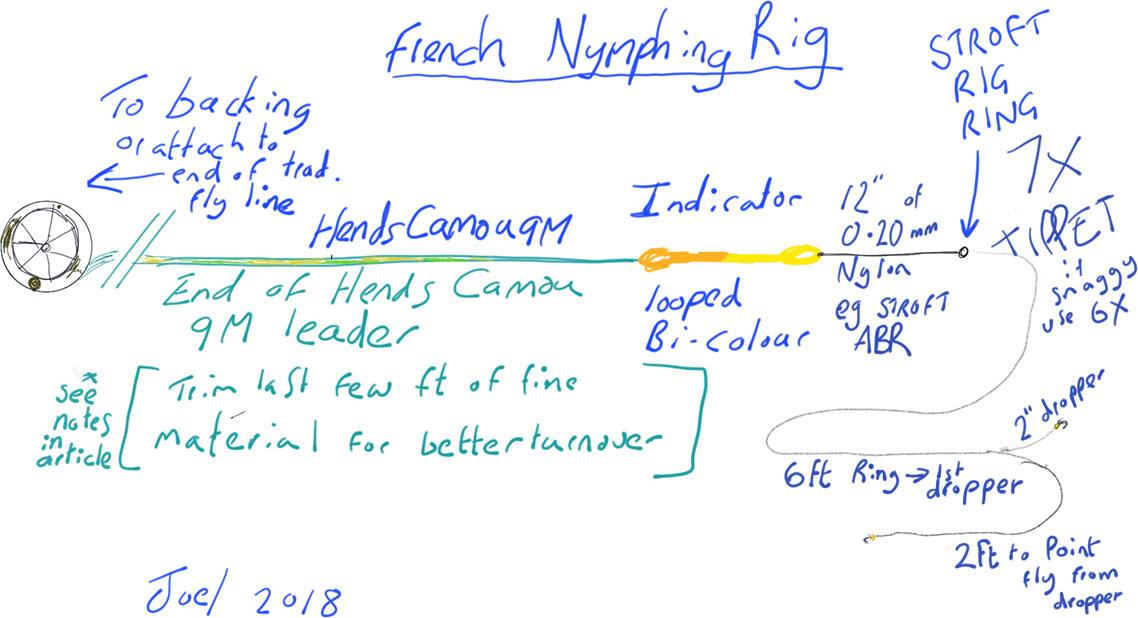 French Nymphing Rig
To backing
or attach to
end of trad.
fly line
STROFT
RIG
RING
7X
TIPPET
if
snaggy
use 6X
Indicator
looped
Bi-colour
12" of
0.20 mm
Nylon
eg STROFT
ABR
Hends Camou 9M
End of Hends Camou
9M leader
*
see
notes
in
article
Trim last few ft of fine
material for better turnover
2" dropper
6ft Ring → 1st
dropper
2ft to Point
fly from
dropper
Joel 2018